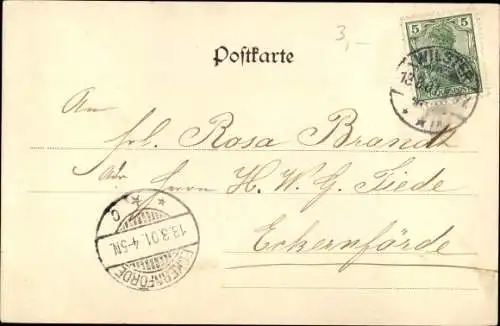 3,-
5 5
Postkarte
WILSTER
13
An
frl. Rosa Brandt
Adr. Herrn H. W. G. Tiede
Eckernförde
ECKERNFÖRDE
13.3.01. 4-5N.
C